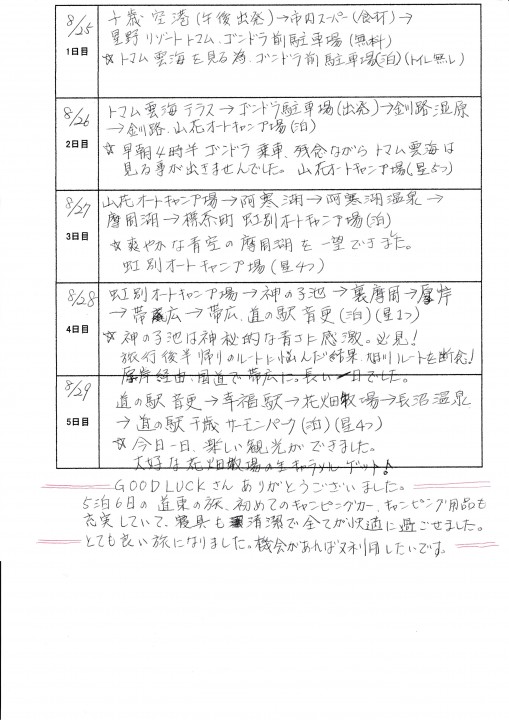 8/25
1日目
千歳空港(午後出発)→市内スーパー(食材)→
星野リゾートトマム、ゴンドラ前駐車場(無料)
☆トマム雲海を見る為、ゴンドラ前駐車場(泊)(トイレ無し)
8/26
2日目
トマム雲海テラス→ゴンドラ駐車場(出発)→釧路湿原
→釧路、山花オートキャンプ場(泊)
☆早朝4時半ゴンドラ乗車、残念ながらトマム雲海は
見る事が出きませんでした。山花オートキャンプ場(星5つ)
8/27
3日目
山花オートキャンプ場→阿寒湖→阿寒湖温泉→
摩周湖→標茶町 虹別オートキャンプ場(泊)
☆爽やかな青空の摩周湖を一望できました。
虹別オートキャンプ場(星4つ)
8/28
4日目
虹別オートキャンプ場→神の子池→裏摩周→厚岸
→帯広→帯広、道の駅音更(泊)(星1つ)
☆神の子池は神秘的な青さに感激。必見!
旅行後半帰りのルートに悩んだ結果、旭川ルートを断念!
厚岸経由、国道で帯広に。長い一日でした。
8/29
5日目
道の駅音更→幸福駅→花畑牧場→長沼温泉
→道の駅千歳サーモンパーク(泊)(星4つ)
☆今日一日、楽しい観光ができました。
大好な花畑牧場の生キャラメルゲット♪
GOOD LUCKさん ありがとうございました。
5泊6日の道東の旅、初めてのキャンピングカー、キャンピング用品も
充実していて、寝具も清潔で全てが快適に過ごせました。
とても良い旅になりました。機会があれば又利用したいです。